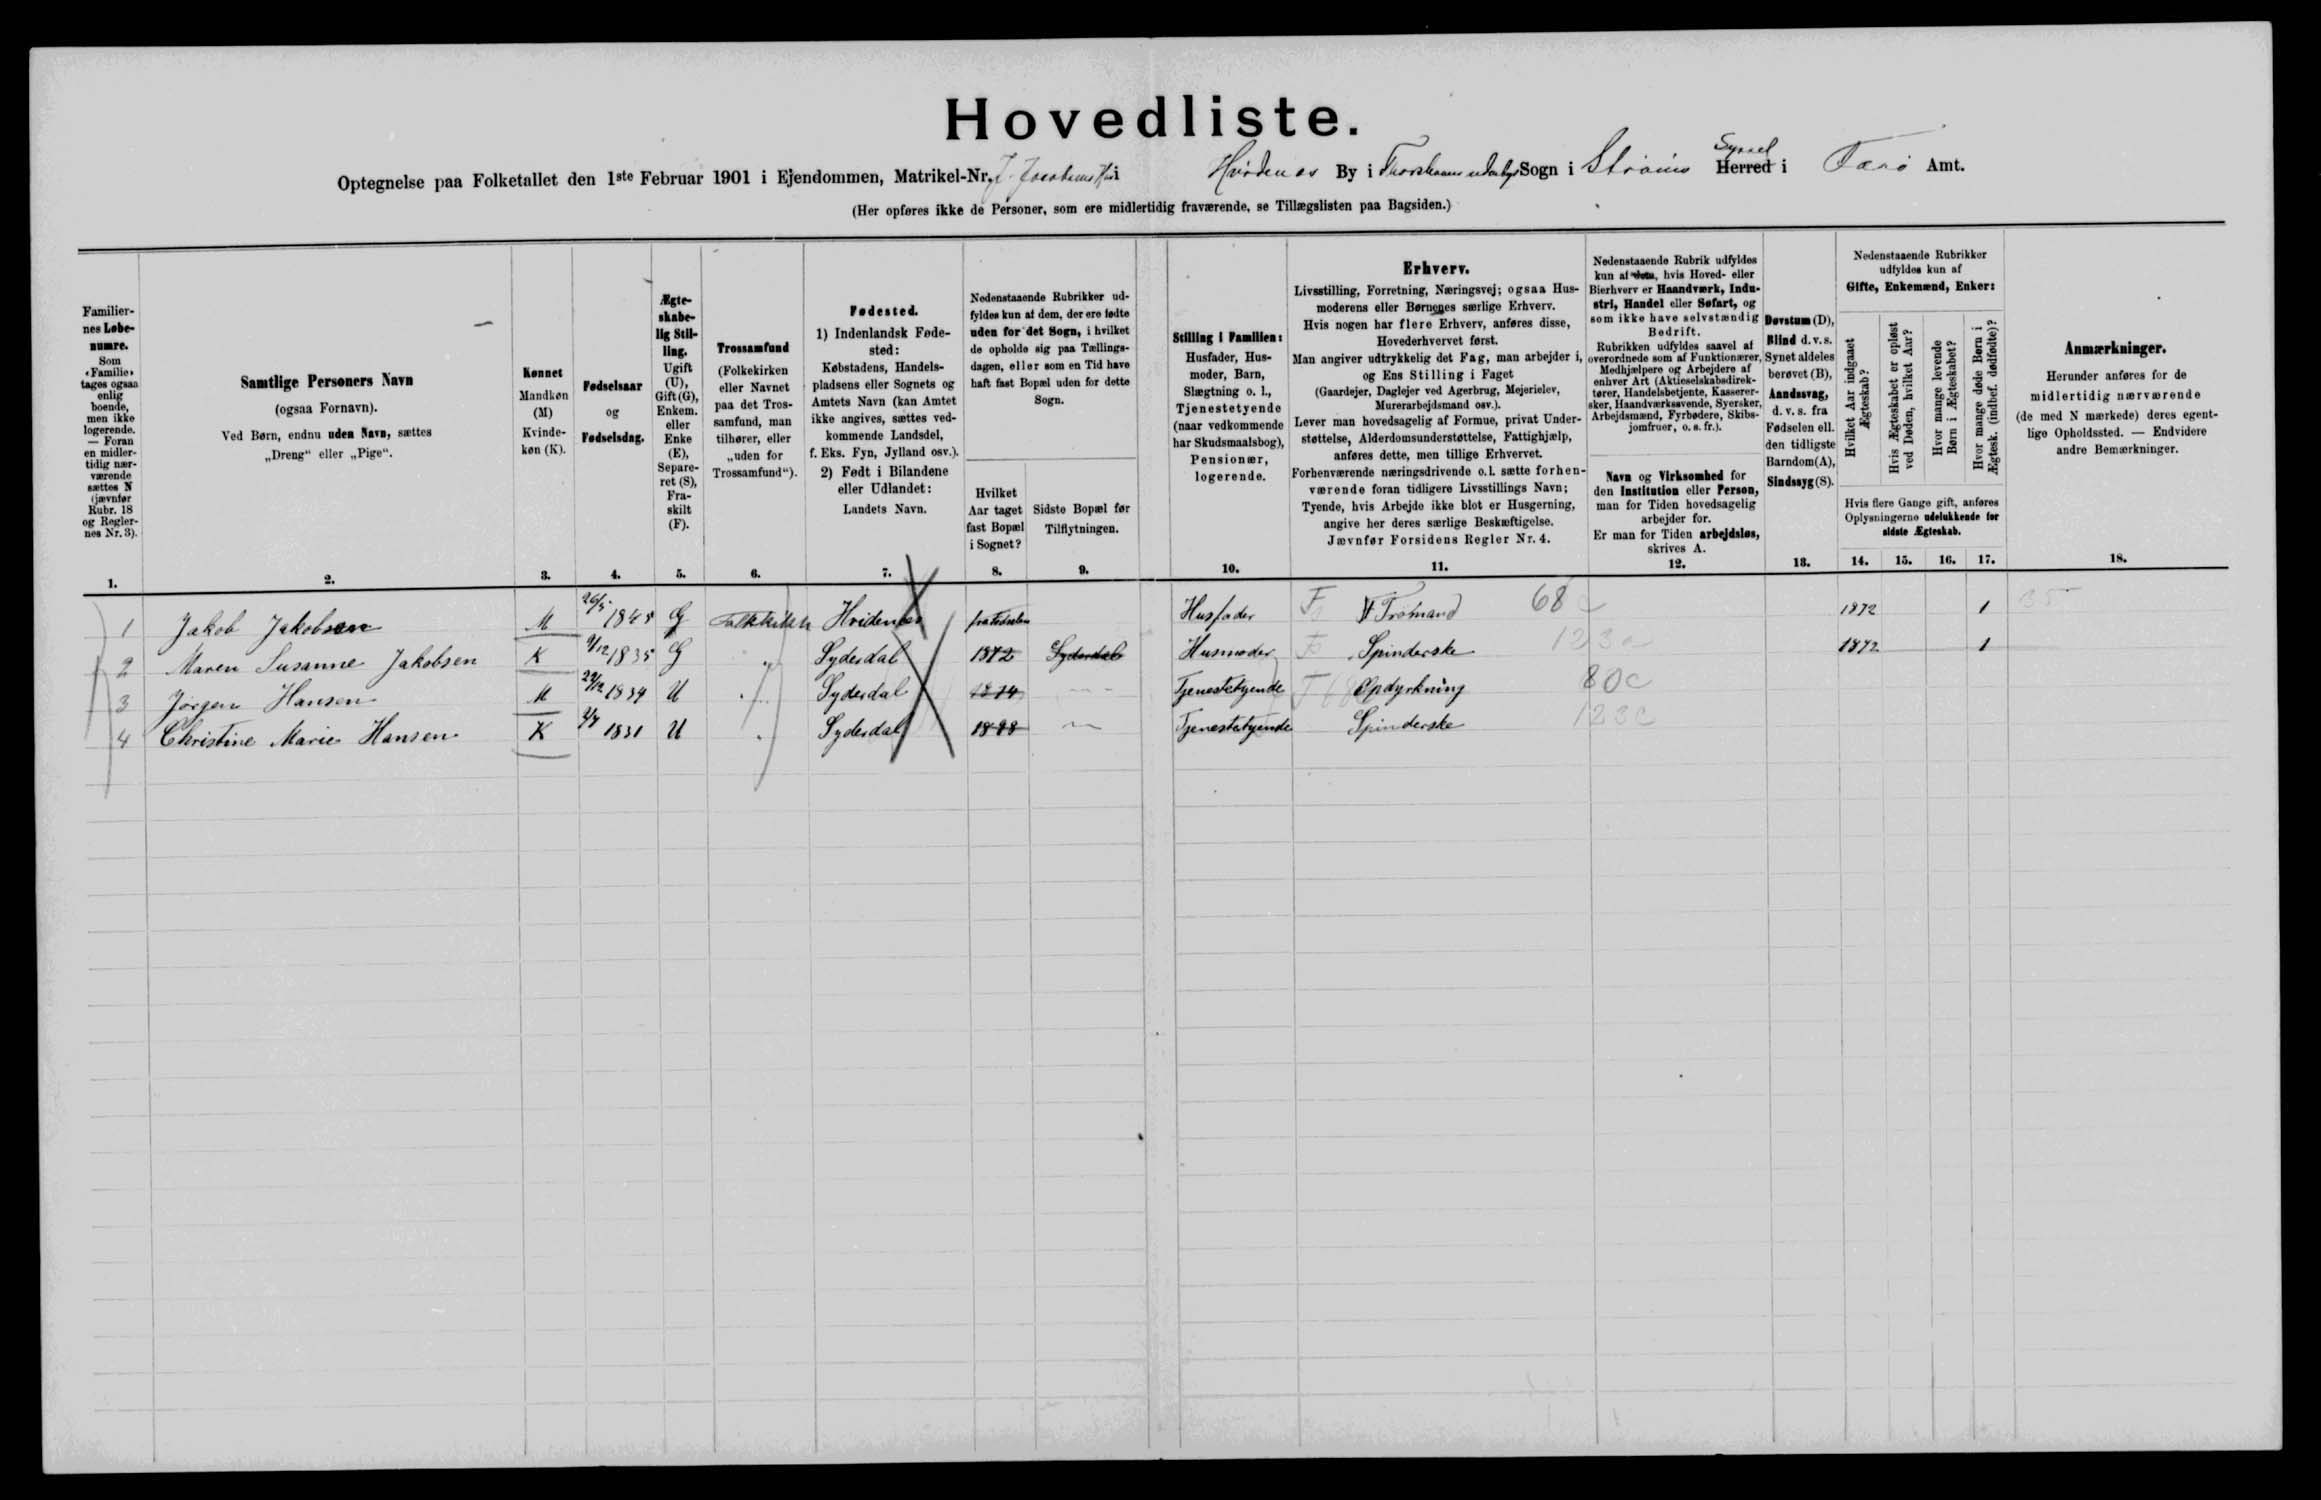 Hovedliste.
Optegnelse paa Folketallet den 1ste Februar 1901 i Ejendommen, Matrikel-Nr. J. Jacobsens Hus i Hvidenæs By i Thorshavns udenbys Sogn i Strömö Syssel Herred i Færø Amt.
(Her opføres ikke de Personer, som ere midlertidig fraværende, se Tillægslisten paa Bagsiden.)
Familier-
nes Løbe-
numre.
Som
«Familie»
tages ogsaa
enlig
boende,
men ikke
logerende.
— Foran
en midler-
tidig nær-
værende
sættes N
(jævnfør
Rubr. 18
og Regler-
nes Nr. 3).
1.
Samtlige Personers Navn
(ogsaa Fornavn).
Ved Børn, endnu uden Navn, sættes
„Dreng“ eller „Pige“.
2.
Kønnet
Mandkøn
(M)
Kvinde-
køn (K).
3.
Fødselsaar
og
Fødselsdag.
4.
Ægte-
skabe-
lig Stil-
ling.
Ugift
(U),
Gift (G),
Enkem.
eller
Enke
(E),
Separe-
ret (S),
Fra-
skilt
(F).
5.
Trossamfund
(Folkekirken
eller Navnet
paa det Tros-
samfund, man
tilhører, eller
„uden for
Trossamfund“).
6.
Fødested.
1) Indenlandsk Føde-
sted:
Købstadens, Handels-
pladsens eller Sognets og
Amtets Navn (kan Amtet
ikke angives, sættes ved-
kommende Landsdel,
f. Eks. Fyn, Jylland osv.).
2) Født i Bilandene
eller Udlandet:
Landets Navn.
7.
Nedenstaaende Rubrikker ud-
fyldes kun af dem, der ere fødte
uden for det Sogn, i hvilket
de opholde sig paa Tællings-
dagen, eller som en Tid have
haft fast Bopæl uden for dette
Sogn.
Hvilket
Aar taget
fast Bopæl
i Sognet?
8.
Sidste Bopæl før
Tilflytningen.
9.
Stilling i Familien:
Husfader, Hus-
moder, Barn,
Slægtning o. l.,
Tjenestetyende
(naar vedkommende
har Skudsmaalsbog),
Pensionær,
logerende.
10.
Erhverv.
Livsstilling, Forretning, Næringsvej; ogsaa Hus-
moderens eller Børnenes særlige Erhverv.
Hvis nogen har flere Erhverv, anføres disse,
Hovederhvervet først.
Man angiver udtrykkelig det Fag, man arbejder i,
og Ens Stilling i Faget
(Gaardejer, Daglejer ved Agerbrug, Mejerielev,
Murerarbejdsmand osv.).
Lever man hovedsagelig af Formue, privat Under-
støttelse, Alderdomsunderstøttelse, Fattighjælp,
anføres dette, men tillige Erhvervet.
Forhenværende næringsdrivende o. l. sætte forhen-
værende foran tidligere Livsstillings Navn;
Tyende, hvis Arbejde ikke blot er Husgerning,
angive her deres særlige Beskæftigelse.
Jævnfør Forsidens Regler Nr. 4.
11.
Nedenstaaende Rubrik udfyldes
kun af dem, hvis Hoved- eller
Bierhverv er Haandværk, Indu-
stri, Handel eller Søfart, og
som ikke have selvstændig
Bedrift.
Rubrikken udfyldes saavel af
overordnede som af Funktionærer,
Medhjælpere og Arbejdere af
enhver Art (Aktieselskabsdirek-
tører, Handelsbetjente, Kasserer-
sker, Haandværkssvende, Syersker,
Arbejdsmænd, Fyrbødere, Skibs-
jomfruer, o. s. fr.).
Navn og Virksomhed for
den Institution eller Person,
man for Tiden hovedsagelig
arbejder for.
Er man for Tiden arbejdsløs,
skrives A.
12.
Døvstum (D),
Blind d. v. s.
Synet aldeles
berøvet (B),
Aandssvag,
d. v. s. fra
Fødselen ell.
den tidligste
Barndom (A),
Sindssyg (S).
13.
Nedenstaaende Rubrikker
udfyldes kun af
Gifte, Enkemænd, Enker:
Hvilket Aar indgaaet
Ægteskab?
Hvis Ægteskabet er opløst
ved Døden, hvilket Aar?
Hvor mange levende
Børn i Ægteskabet?
Hvor mange døde Børn i
Ægtesk. (indbef. dødfødte)?
Hvis flere Gange gift, anføres
Oplysningerne udelukkende for
sidste Ægteskab.
14. 15. 16. 17.
Anmærkninger.
Herunder anføres for de
midlertidig nærværende
(de med N mærkede) deres egent-
lige Opholdssted. — Endvidere
andre Bemærkninger.
18.
1 Jakob Jakobsen M 26/5 1845 G Folkekirken Hvidenæs fra Fødselen Husfader F 68 1872 1 35
2 Maren Susanne Jakobsen K 9/12 1835 G „ Syderdal 1872 Syderdal Husmoder Spinderske 123 1872 1
3 Jörgen Hansen M 29/12 1834 U „ Syderdal 1874 — Tjenestetyende Opdyrkning 80c
4 Christine Marie Hansen K 1831 U „ Syderdal 1888 — Tjenestetyende Spinderske 123c